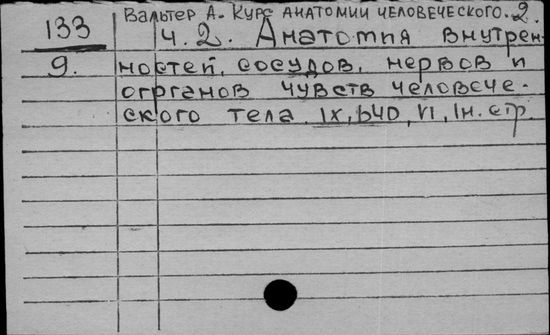 Вальтер А. Курс анатомии человеческого. 2.
133 ч. 2. Анатомия внутрен-
9. ностей, сосудов, нервов и
органов чувств человече-
ского тела. IX, 640, VI, 1н. стр.